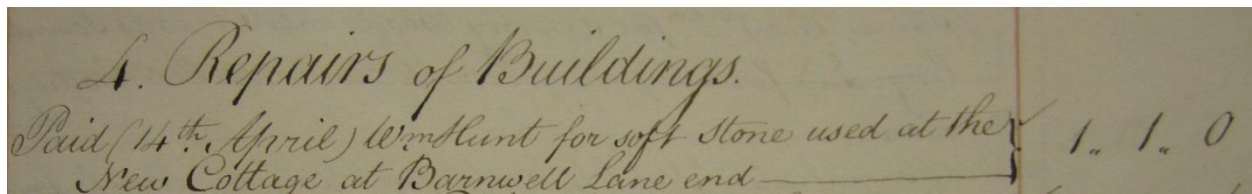 4. Repairs of Buildings.
Paid (14th. April) Wm Hunt for soft Stone used at the } 1 „ 1 „ 0
New Cottage at Barnwell Lane end